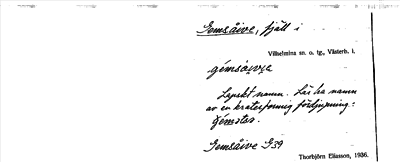 Gemsåive, fjäll i
Vilhelmina sn. o. tg., Västerb. l.
gémsòi̯vɛ
Lapskt namn. Lär ha namn
av en kraterformig fördjupning:
Gemstes.
Gemsåive G39
Thorbjörn Eliasson, 1936.